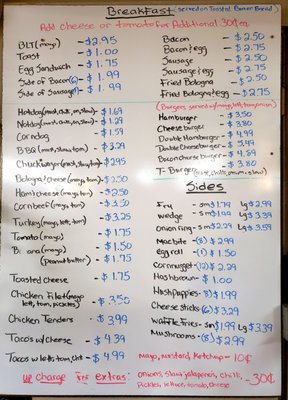 Breakfast (served on Toasted Bun or Bread)
Add cheese or tomato for Additional 30¢ ea
BLT (mayo) - $2.95
Toast - $1.00
Egg Sandwich - $1.75
Side of Bacon (6) - $1.99
Side of Sausage - $1.99
Bacon - $2.50
Bacon & egg - $2.75
Sausage - $2.50
Sausage & egg - $2.75
Fried Bologna - $2.50
Fried Bologna & egg - $2.75
Hotdog (must, chili, on, slaw) - $1.69
Corndog $1.59
BBQ (must, slaw, tom) - $3.29
Chuckwagon (must, slaw, tom) - $2.95
Bologna & cheese (mayo, tom) $2.50
Ham & cheese (mayo, tom) $2.50
Corn beef (mayo, tom) - $3.50
Turkey (mayo, lett, tom) - $3.25
Tomato (mayo) - $1.75
Banana (mayo) - $1.50
(peanut butter) - $1.75
Toasted Cheese - $1.75
Chicken Filet (mayo, lett, tom, pickles) - $3.50
Chicken Tenders - $3.99
Tacos w/ cheese - $4.39
Tacos w/ lett, tom, - $4.99
(Burgers, served w/ mayo, lett, tom, onion)
Hamburger - $3.50
Cheeseburger - $3.80
Double Hamburger - $4.99
Double Cheeseburger - $5.49
Bacon cheese burger - $4.89
T-Burger (must, chili, onion, slaw) - $3.80
Sides
Fry - sm $1.79 Lg $2.99
wedge - sm $1.99 Lg $3.39
onion ring - sm $2.29 Lg $3.59
Mac bite - (8) $2.99
Egg roll - (1) $1.50
Corn nugget - (12) $2.29
Hashbrown - $1.00
Hushpuppies - (8) $1.99
Cheese sticks (6) $3.29
Waffle fries - sm $1.99 Lg $3.39
Mushrooms - (8) $2.99
Mayo, mustard, Ketchup - 10¢
Up Charge For extras: onions, slaw, jalapeno's, chili, Pickles, lettuce, tomato, cheese - 30¢